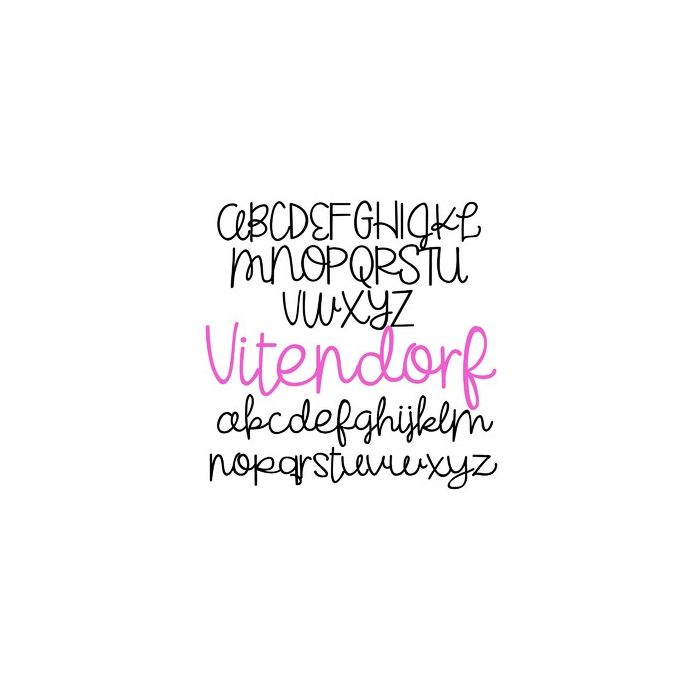 ABCDEFGHIJKL
MNOPQRSTU
VWXYZ
Vitendorf
abcdefghijklm
nopqrstuvwxyz